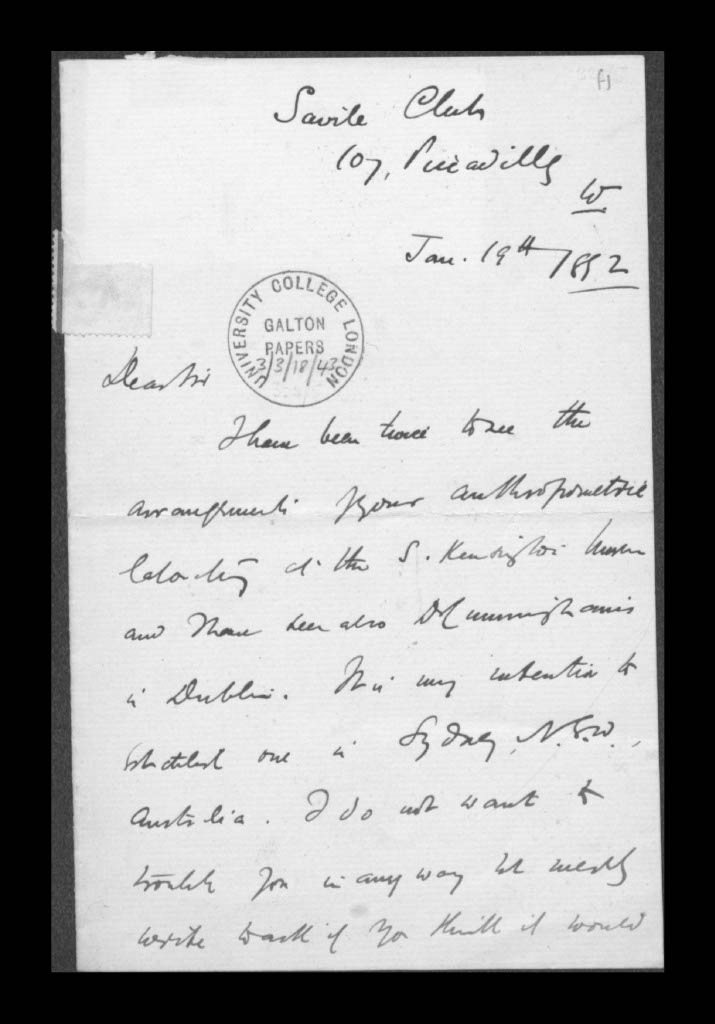 f1
Savile Club
107, Piccadilly
W
Jan. 19th 1892
UNIVERSITY COLLEGE LONDON
GALTON
PAPERS
3/3/18/43
Dear Sir
I have been twice to see the
arrangements of your anthropometric
laboratory at the S. Kensington Museum
and I have seen also Dr Cunningham's
in Dublin. It is my intention to
establish one in Sydney, N.S.W.,
Australia. I do not want to
trouble you in any way but merely
write to ask if you think it would